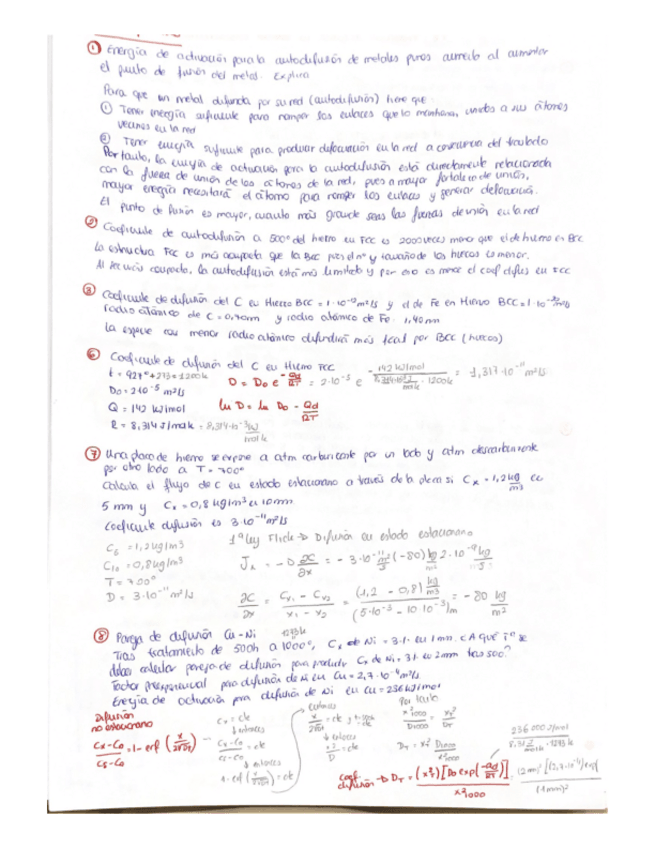 ① Energía de activación para la autodifusión de metales puros aumenta al aumentar
el punto de fusión del metal. Explica
Para que un metal difunda por su red (autodifusión) tiene que
① Tener energía suficiente para romper los enlaces que lo mantiene, unidos a sus átomos
vecinos en la red
② Tener energía suficiente para producir deformación en la red a consecuencia del traslado
Por tanto, la energía de activación para la autodifusión está directamente relacionada
con la fuerza de unión de los átomos de la red, pues a mayor fortaleza de unión,
mayor energía necesitará el átomo para romper los enlaces y generar deformación.
El punto de fusión es mayor, cuanto más grande sean las fuerzas de unión en la red
② Coeficiente de autodifusión a 500° del hierro en FCC es 2000 veces menor que el de hierro en BCC
La estructura FCC es más compacta que la BCC por el nº y tamaño de los huecos es menor.
Al ser más compacta, la autodifusión está más limitada y por eso es menor el coef difus en FCC
③ Coeficiente de difusión del C en Hierro BCC = 1·10 m²/s y el de Fe en Hierro BCC = 1·10
radio atómico de C = y radio atómico de Fe
La especie con menor radio atómico difundirá más fácil por BCC (huecos)
⑥ Coeficiente de difusión del C en Hierro FCC
t = 927°+273=1200k
D = D₀ e^(-Qd/RT) = 2·10⁻⁵ e^(-142 kJ/mol / 8,314·10⁻³ · 1200k) = 1,317·10⁻¹¹ m²/s
D₀ = 2·10⁻⁵ m²/s
Q = 142 kJ/mol ln D = ln D₀ - Qd/RT
R = 8,314 J/mol k = 8,314·10⁻³ kJ/mol k
⑦ Una placa de hierro se expone a atm carburizante por un lado y atm descarburizante
por otro lado a T = 700°
Calcula el flujo de C en estado estacionario a través de la placa si Cx = 1,2 kg/m³ a
5 mm y Cx = 0,8 kg/m³ a 10mm
Coeficiente difusión es 3·10⁻¹¹ m²/s
1ª ley Flick → Difusión en estado estacionario
C₅ = 1,2 kg/m³
C₁₀ = 0,8 kg/m³
T = 700°
D = 3·10⁻¹¹ m²/s
Jₓ = -D ∂C/∂x = - 3·10⁻¹¹ m²/s (-80) kg 2·10⁻⁹ kg
∂C/∂x = (Cx₁ - Cx₂)/(x₁ - x₂) = (1,2 - 0,8) kg/m³ / (5·10⁻³ - 10·10⁻³)m = -80 kg
⑧ Pareja de difusión Cu-Ni
1273k
Tras tratamiento de 500h a 1000°, Cx de Ni = 3% en 1mm. ¿A qué Tª se
debes calentar pareja de difusión para producir Cx de Ni = 3% en 2mm tras 500?
Factor preexponencial para difusión de Ni en Cu = 2,7·10⁻⁴ m²/s
Energía de activación para difusión de Ni en Cu = 236 kJ/mol
Difusión
no estacionario
(Cx-C₀)/(Cs-C₀) = 1 - erf (x/2√Dt)
Cx = cte
↓ entonces
(Cx-C₀)/(Cs-C₀) = cte
↓ entonces
1 - erf (x/2√Dt) = cte
entonces
x/2√Dt = cte
↓ entonces
x²/D = cte
Por tanto
x²₁₀₀₀/D₁₀₀₀ = x²T/DT
DT = x²T D₁₀₀₀/x²₁₀₀₀
coef.
difusión → DT = (x²T)[D₀ exp(-Qd/RT)] / x²₁₀₀₀
236 000 J/mol
(2mm)² [(2,7·10⁻⁴) exp
(1mm)²